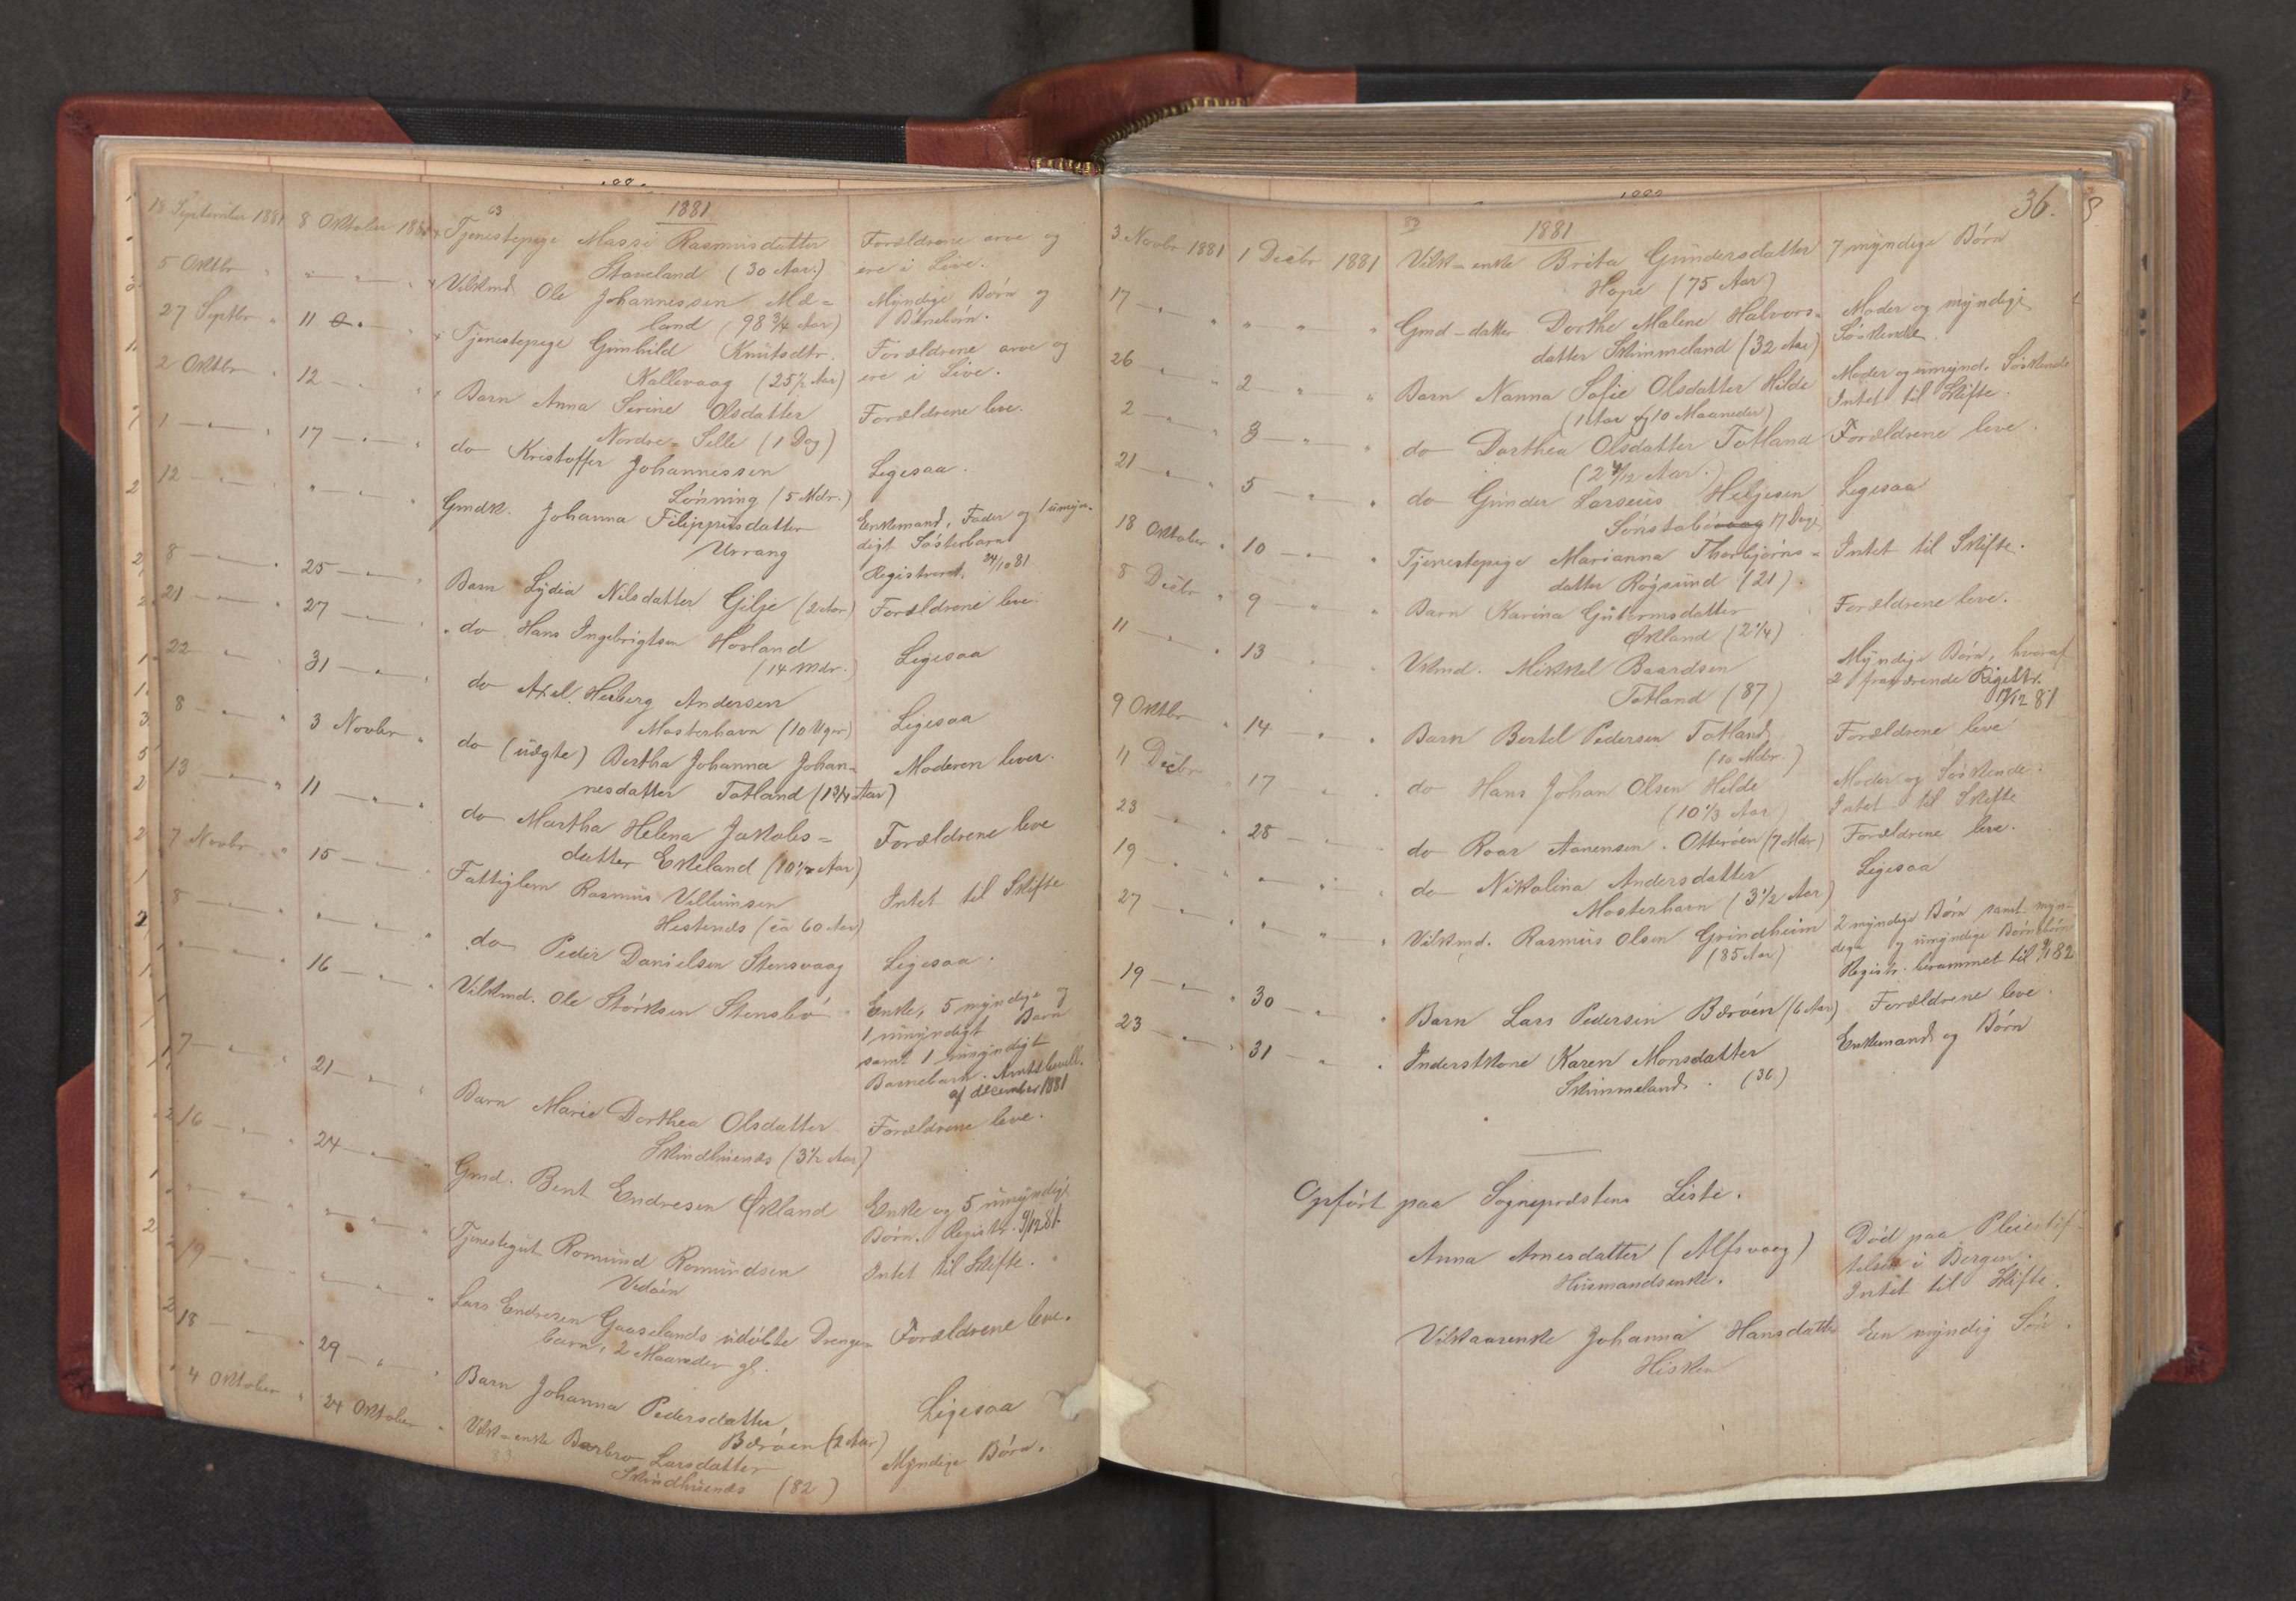 1881
63
18 September 1881 8 Oktober 1881 Tjenestepige Massi Rasmusdatter Forældrene arve og
Staveland (30 Aar.) ere i Live.
5 Oktbr " " — " — " Vilkmd Ole Johannessen Mæ= Myndige Børn og
land (98 3/4 Aar) Børnebørn.
27 Septbr " 11 — " Tjenestepige Gunhild Knutsdtr. Forældrene arve og
Kallevaag (25 1/2 Aar) ere i Live.
2 Oktbr " 12 — " — " Barn Anna Serine Olsdatter Forældrene leve.
Nordre-Selle (1 Dag)
1 — " — " 17 — " — " do Kristoffer Johannessen Ligesaa.
Lønning (5 Mdr.)
12 — " — " " — " — " Gmdk. Johanna Filippusdatter Enkemand, Fader og 1 umyn-
Urrang digt Søsterbarn
Registreret 24/10 81
8 — " — " 25 — " — " Barn Lydia Nilsdatter Gilje (2 Aar) Forældrene leve.
21 — " — " 27 — " — " do Hans Ingebrigtsen Hovland Ligesaa
(14 Mdr.)
22 — " — " 31 — " — " do Axel Heiberg Andersen Ligesaa
Mosterhavn (10 Uger)
8 — " — " 3 Novbr " do (uægte) Bertha Johanna Johan= Moderen lever.
nesdatter Totland (1 3/4 Aar)
13 — " — " 11 — " — " do Martha Helena Jakobs= Forældrene leve
datter Ekeland (10 1/2 Aar)
7 Novbr " 15 — " — " Fattiglem Rasmus Villumsen Intet til Skifte
Hestenæs (ca 60 Aar)
8 — " — " " — " — " do Peder Danielsen Stensvaag Ligesaa.
" — " — " 16 — " — " Vilkmd. Ole Størksen Stensbø Enke, 5 myndige og
1 umyndigt Barn
samt 1 umyndigt
Barnebarn. Amtsbevill.
af december 1881
17 — " — " 21 — " — " Barn Marie Dorthea Olsdatter Forældrene leve.
Skindhuenæs (3 1/2 Aar)
16 — " — " 24 — " — " Gmd. Bent Endresen Økland Enke og 5 umyndige
Børn. Registr. 9/12 81.
" — " — " " — " — " Tjenestegut Romund Romundsen Intet til Skifte.
Vedøen
19 — " — " " — " — " Lars Endresen Gaaselands udøbte Drenge= Forældrene leve.
barn, 2 Maaneder gl.
18 — " — " 29 — " — " Barn Johanna Pedersdatter Ligesaa
Børøen (2 Aar)
4 Oktober " 24 Oktober " Vilk=enke Barbro Larsdatter Myndige Børn.
Skindhuenæs (82)
83
36.
83
1881
3 Novbr 1881 1 Decbr 1881 Vilk=enke Brita Gundersdatter 7 myndige Børn
Hope (75 Aar)
17 — " — " " — " — " Gmd-datter Dorthe Malene Halvors= Moder og myndige
datter Skimmeland (32 Aar) Søskende.
26 — " — " 2 — " — " Barn Nanna Sofie Olsdatter Hilde Moder og umynd. Søskende
(1 Aar og 10 Maaneder) Intet til Skifte.
2 — " — " 3 — " — " do Dorthea Olsdatter Totland Forældrene leve.
(2 4/12 Aar.)
21 — " — " 5 — " — " do Gunder Larseus Heljesen Ligesaa
Sønstabø 17 Dage
18 Oktober " 10 — " — " Tjenestepige Marianna Thorbjørns= Intet til Skifte.
datter Røgsund (21)
8 Decbr " 9 — " — " Barn Karina Gutormsdatter Forældrene leve.
Økland (2 1/4)
11 — " — " 13 — " — " Vilmd. Mikkel Baardsen Myndige Børn, hvoraf
Totland (87) 2 fraværende Registr.
17/12 81
9 Oktbr " 14 — " — " Barn Bertel Pedersen Totland Forældrene leve
(10 Mdr.)
11 Decbr " 17 — " — " do Hans Johan Olsen Hilde Moder og Søskende.
(10 1/3 Aar) Intet til Skifte
23 — " — " 28 — " — " do Roar Aanensen. Otterøen (7 Mdr) Forældrene leve.
19 — " — " " — " — " do Nikolina Andersdatter Ligesaa
Mosterhavn (3 1/2 Aar)
27 — " — " " — " — " Vilkmd. Rasmus Olsen Grindheim 2 myndige Børn samt myn-
(85 Aar) dige og umyndige Børnebørn
Registr. berammet til 82
19 — " — " 30 — " — " Barn Lars Pedersen Børøen (6 Aar) Forældrene leve.
23 — " — " 31 — " — " Inderstkone Karen Monsdatter Enkemand og Børn
Skimmeland. (36)
Opført paa Sogneprestens Liste.
Anna Arnesdatter (Alfsvaag) Død paa Pleiestif-
Husmandsenke. telsen i Bergen.
Intet til Skifte.
Vilkaarenke Johanna Hansdatter Een myndig Søn.
Hisken